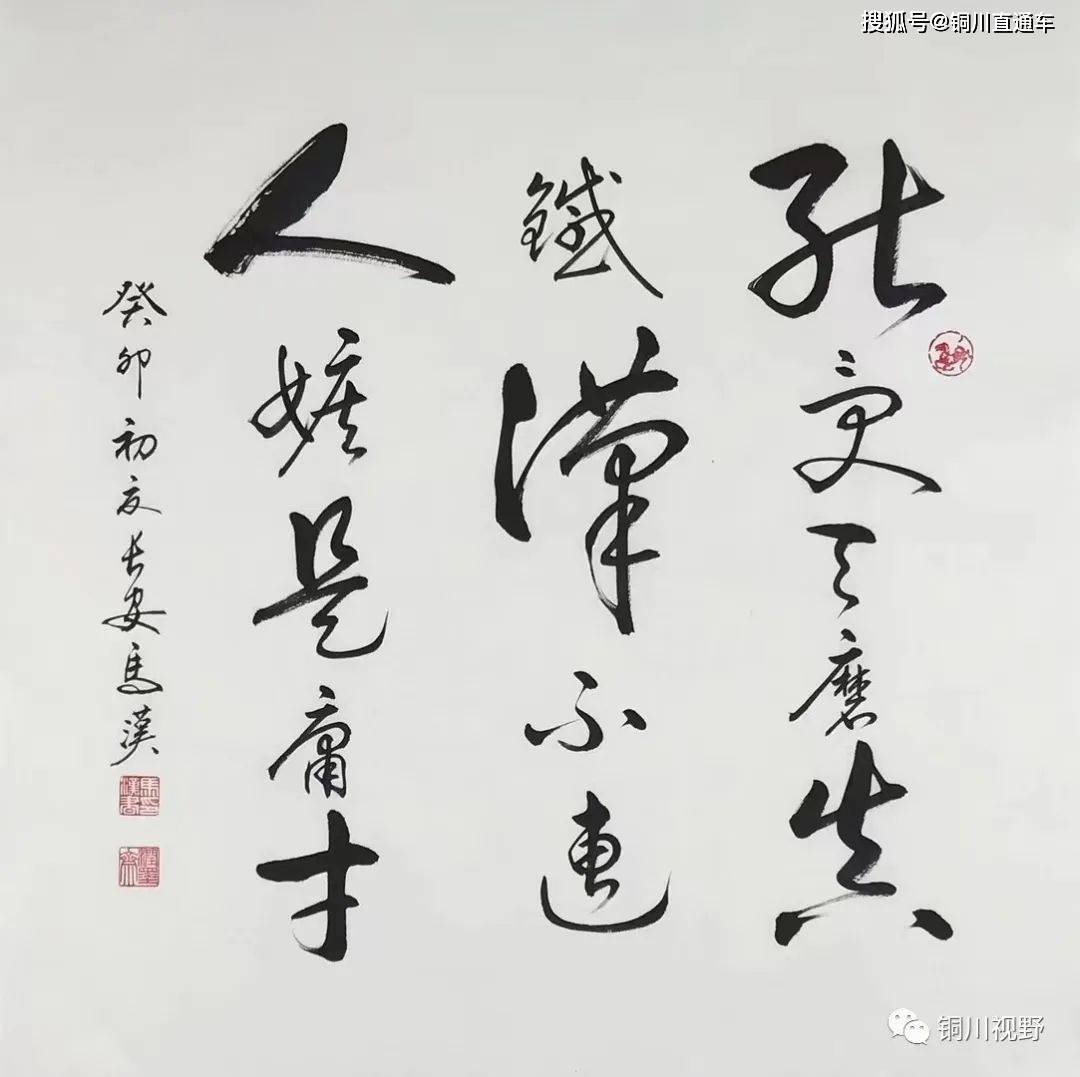 搜狐号@铜川直通车
能受天磨真
鐵漢不遭
人嫉是庸才
癸卯初夏長安馬漢
铜川视野